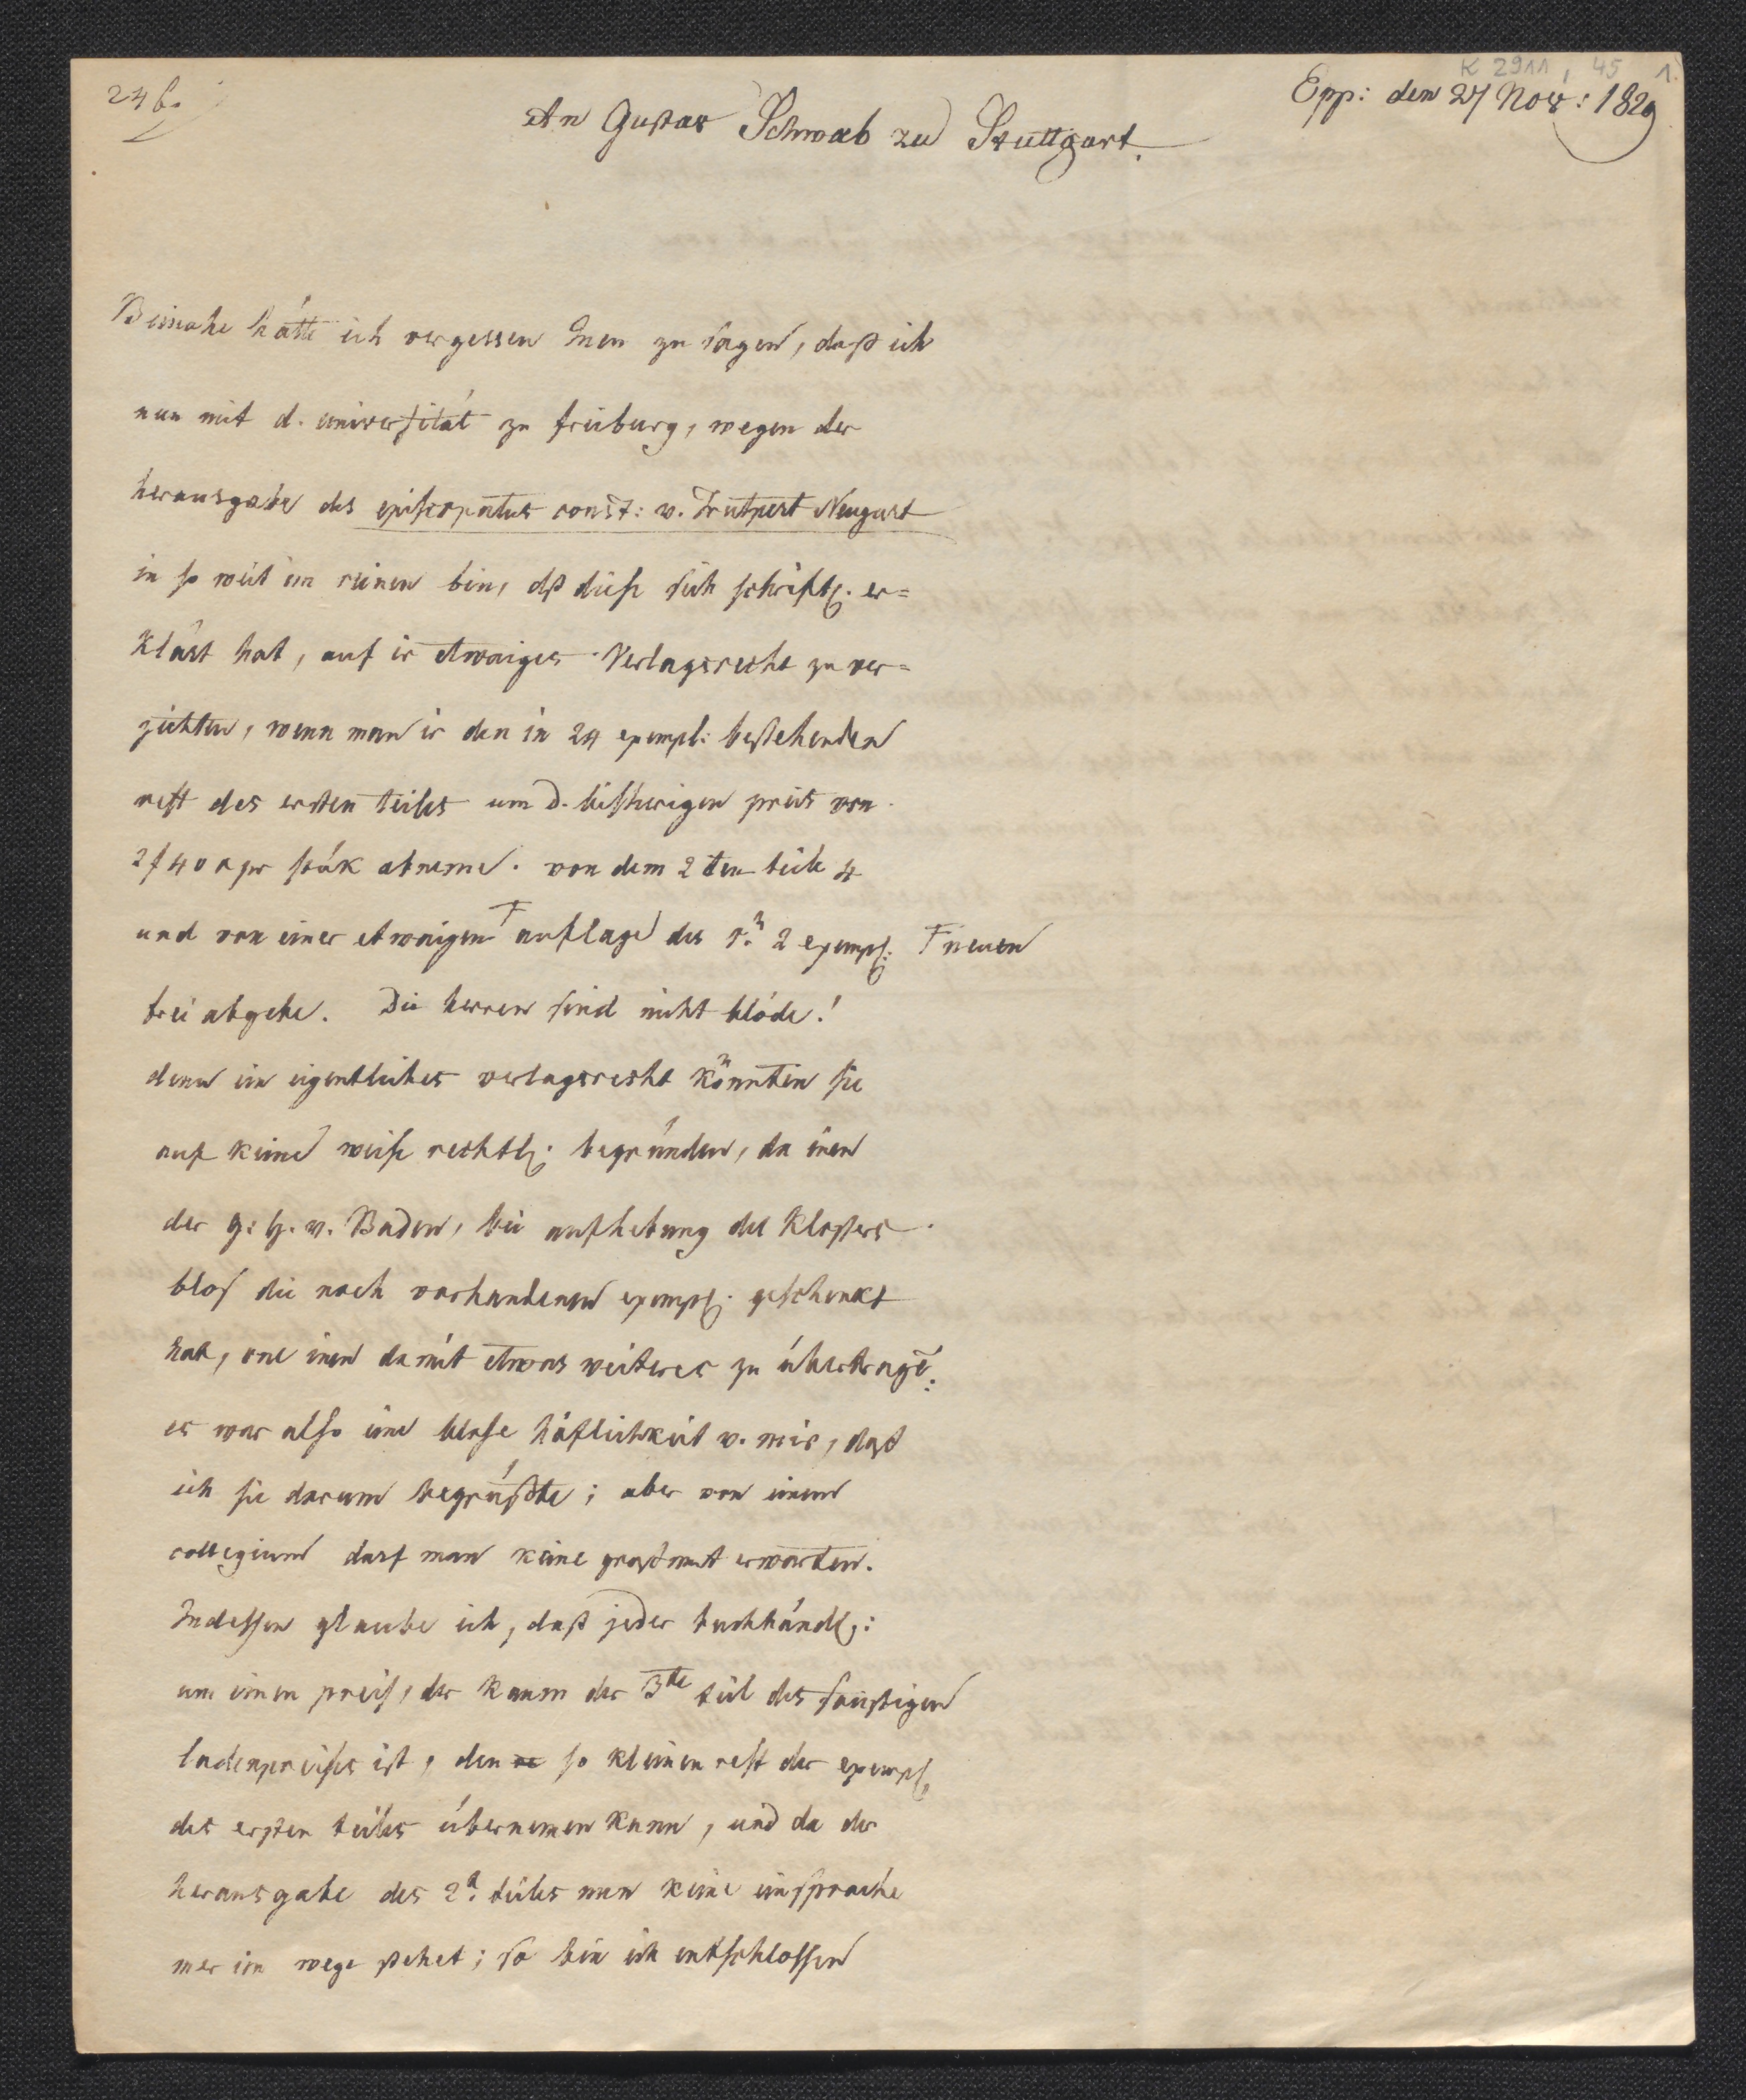 24 b.
K 2911, 45 1.
Epp: den 27 Nov: 1829
An Gustav Schwab zu Stuttgart.
Beinahe hätte ich vergessen Inen zu sagen, daß ich
nun mit d. universität zu freiburg, wegen der
herausgabe des episcopatus const: v. Trutpert Neugart
in so weit im reinen bin, dß diese sich schriftl. er=
klärt hat, auf ir etwaiges Verlagsrecht zu ver=
zichten, wenn man ir den in 24 exempl: bestehenden
rest des ersten teiles um d. bisherigen preis von
2 f 40 x pr stük abneme. von dem 2ten teile 4
und von einer etwaigen Ŧ auflage des 1.n 2 exempl: Ŧ neuen
frei abgebe. Die herren sind nicht blöde!
denn ein eigentliches verlagsrecht könnten sie
auf keine weise rechtl: begründen, da inen
der g: h. v. Baden, bei aufhebung des Klosters
blos die noch vorhandenen exempl. geschenkt
hat, one inen damit etwas weiteres zu übertragē:
es war also eine blose höflichkeit v. mir, daß
ich sie darum begrüßte; aber von einem
collegium darf man keine grosmut erwarten.
Indessen glaube ich, daß jeder buchhändl:
um einen preis, der kaum der 3te teil des sonstigen
ladenpreises ist, den so kleinen rest der exempl.
des ersten teiles übernemen kann, und da der
herausgabe des 2n. teiles nun keine einsprache
mer im wege stehet; so bin ich entschlossen